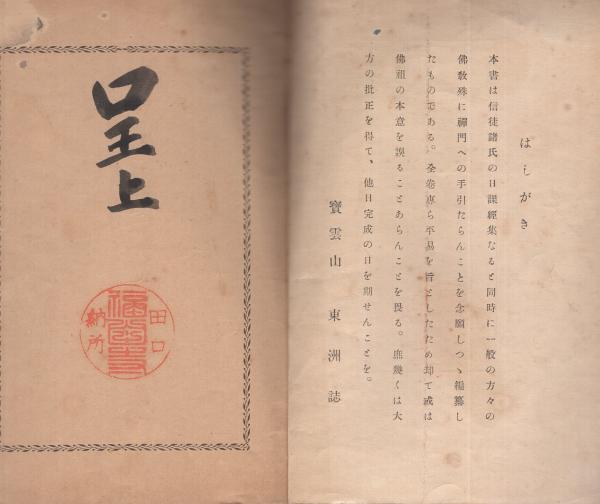 はしがき
本書は信徒諸氏の日課經集なると同時に一般の方々の
佛敎殊に禪門への手引たらんことを念願しつゝ編纂し
たものである。全卷專ら平易を旨としたため却て或は
佛祖の本意を誤ることあらんことを畏る。庶幾くは大
方の批正を得て、他日完成の日を期せんことを。
寶雲山 東洲誌
呈上
田口
納所